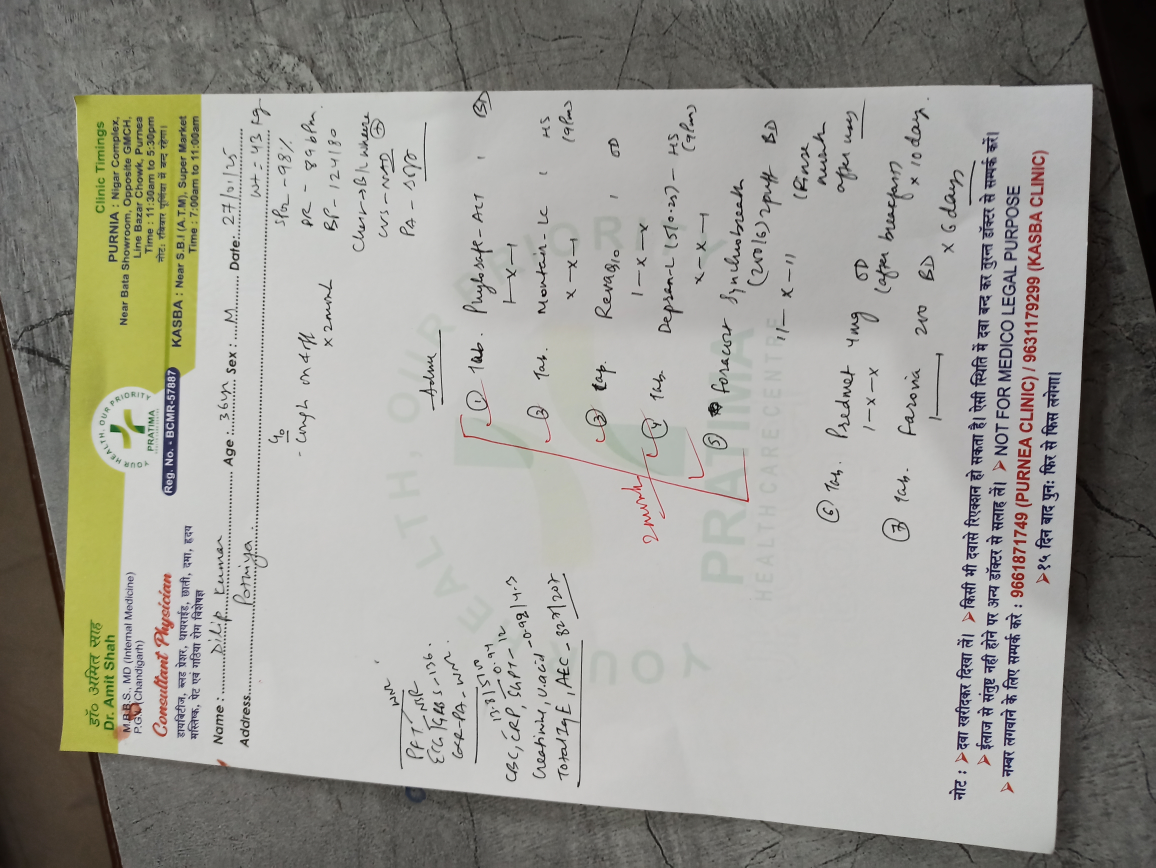 डॉ० अमित साह
Dr. Amit Shah
M.B.B.S., MD (Internal Medicine)
P.G.I (Chandigarh)
Consultant Physician
डायबिटीज, ब्लड प्रेशर, थायराईड, छाती, दमा, हृदय
मस्तिष्क, पेट एवं गठिया रोग विशेषज्ञ
YOUR HEALTH, OUR PRIORITY
PRATIMA
Reg. No. - BCMR-57887
Clinic Timings
PURNIA : Nigar Complex,
Near Bata Showroom, Opposite GMCH,
Line Bazar Chowk, Purnea
Time : 11:30am to 5:30pm
नोट: रविवार पूर्णिया में बन्द रहेगा।
KASBA : Near S.B.I (A.T.M), Super Market
Time : 7:00am to 11:00am
Name : Dilip Kumar Age : 36yr Sex : M Date: 27/01/25
Address Pothiya Wt - 43 kg
C/o
- Cough on & off
x 2 month
SPO2 - 98%
PR - 86 bpm
BP - 124/80
Chest - B/L wheeze
CVS - NAD
PA - soft
PFT - WNR
ECG - NSR
GRBS - 136.
CXR-PA - WNR.
CBC, CRP, SGPT - 12
Creatinine, U.acid - 0.98/4.3
Total IgE, AEC - 827/207
Adv
① Tab. Phylosafe - ACT , BD
1-x-1
② Tab. Montair-LC , HS
x-x-1 (9Pm)
③ Cap. Revaq10 , OD
1-x-x
④ Tab. Depran-L (5/0.25) - HS
x-x-1 (9Pm)
2 month
⑤ Foracort Synchrobreath
(200/6) 2puff BD
11-x-11 (Rinse
mouth
after use)
⑥ Tab. Predmet 4mg OD
1-x-x (after breakfast)
x 10 days.
⑦ Tab. Faronia 200 BD
1 x 6 days
YOUR HEALTH, OUR PRIORITY
PRATIMA
HEALTH CARE CENTRE
नोट : ➤ दवा खरीदकर दिखा लें। ➤ किसी भी दवासे रिएक्शन हो सकता है ऐसी स्थिति में दवा बन्द कर तुरन्त डॉक्टर से सम्पर्क करें।
➤ ईलाज से संतुष्ट नही होने पर अन्य डॉक्टर से सलाह लें। ➤ NOT FOR MEDICO LEGAL PURPOSE
➤ नम्बर लगवाने के लिए सम्पर्क करे : 9661871749 (PURNEA CLINIC) / 9631179299 (KASBA CLINIC)
➤ १५ दिन बाद पुनः फिर से फिस लगेगा।